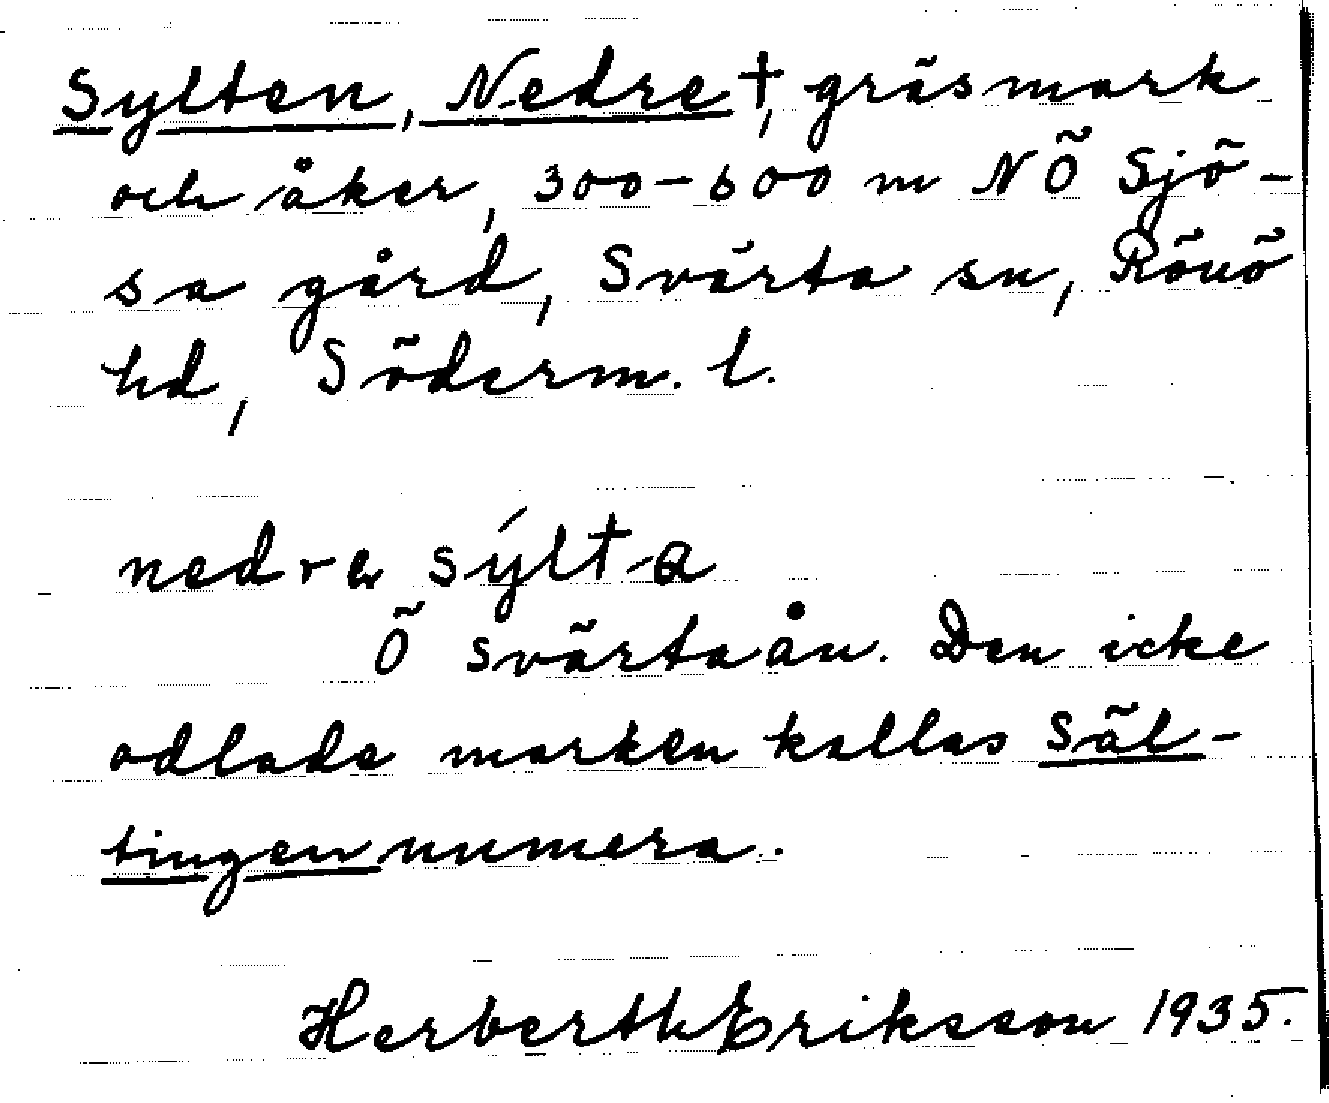 Sylten, Nedre †, gräsmark
och åker, 300-600 m NÖ Sjö-
sa gård, Svärta sn, Rönö
hd, Söderm. l.
nedrɐ sýlta
Ö svärtaån. Den icke
odlade marken kallas Säl-
tingen numera.
Herberth Eriksson 1935.